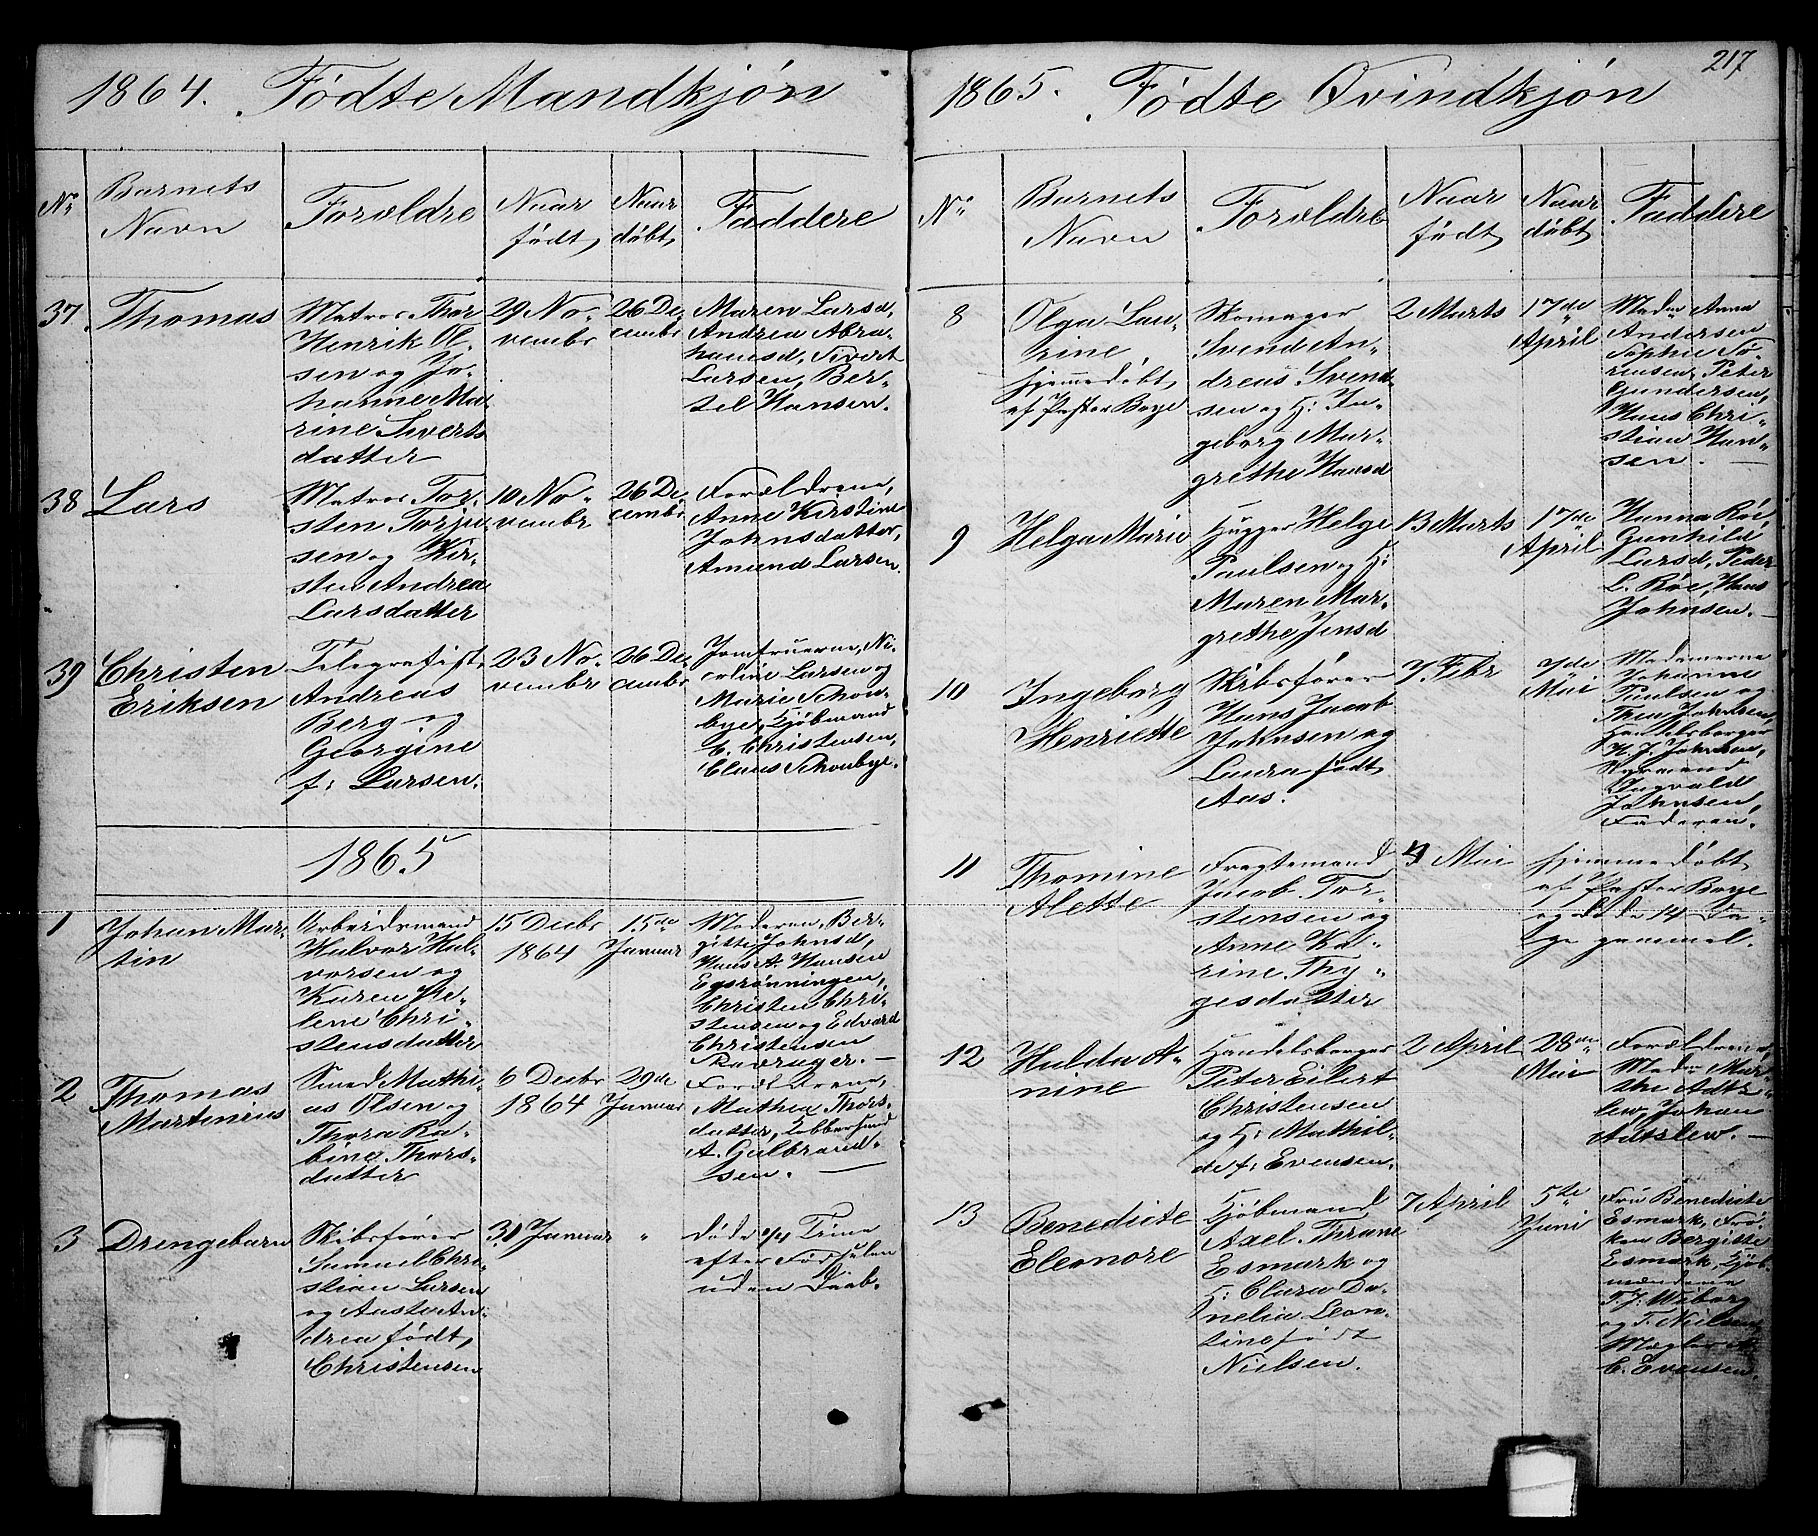 1864. Fødte Mandkjøn
No
Barnets
Navn
Forældre
Naar
født
Naar
døbt
Faddere
37
Thomas
Matros Thor
Henrik Ol-
sen og Jo-
hanne Ma-
rine Siverts
datter
29 No-
vembr
26 De-
cembr
Maren Larsd,
Andrea Abra-
hamsd, Sivert
Larsen, Ber-
tel Hansen.
38
Lars
Matros Tor-
sten Torju
sen og Kir-
sten Andrea
Larsdatter
10 No-
vembr
26 De-
cembr
Forældrene,
Anne Kirstine
Johnsdatter,
Amund Larsen.
39
Christen
Eriksen
Telegrafist
Andreas
Berg og
Georgine
f: Larsen.
23 No-
vembr
26 De-
cembr
Jomfruerne, Ni-
coline Larsen og
Marie Schon-
bye, Kjøbmand
E. Christensen,
Claus Schonbye.
1865
1
Johan Mar-
tin
Arbeidsmand
Halvor Hal-
vorsen og
Karen He-
lene Chri-
stensdatter
15 Decbr
1864
15de
Januar
Moderen, Ber-
gitte Johnsd,
Hans A. Hansen
Egsrønningen,
Christen Chri-
stensen og Edvard
Christensen
2
Thomas
Martinius
Smed Mathi-
as Olsen og
Thora Ra-
bine Thors-
datter
6 Decbr
1864
29de
Januar
Forældrene,
Mathea Thors-
datter, Kobbersmed
A. Gulbrand-
sen.
3
Drengebarn
Skibsfører
Samuel Chri-
stian Larsen
og Aaste An-
drea født,
Christensen
31 Januar
"
døde 3/4 Time
efter Fødselen
uden Daab.
217
1865. Fødte Qvindkjøn
No
Barnets
Navn
Forældre
Naar
født
Naar
døbt
Faddere
8
Olga Lau-
rine,
hjemmedøbt
af Pastor Boye
Skomager
Svend An-
dreas Svend-
sen og H: In-
geborg Mar-
grethe Hansd
2 Marts
17de
April
Madm Anna
Andersen
Sophie Sø-
rensen, Peter
Gundersen,
Hans Chri-
stian Han-
sen.
9
Helga Marie
Hugger Helge
Paulsen og H:
Maren Mar-
grethe Jensd
13 Marts
17de
April
Hanna Röe,
Gunhild
Larsd, Peder
L. Röe, Hans
Johnsen.
10
Ingeborg
Henriette
Skibsfører
Hans Jacob
Johnsen og
Laura født
Aas.
7 Febr
7de
Mai
Madamerne
Johanne
Paulsen og
Thea Johnsen,
Handelsborger
H. J. Johnsen,
Styrmand
Ingvald
Johnsen,
Faderen.
11
Thomine
Alette
Fragtemand
Jacob Tor-
stensen og
Anne Ka-
rine Thy-
gesdatter
4 Mai
hjemmedøbt
af Pastor Boye
og døde 14 Da-
ge gammel.
12
Hulda A-
nine
Handelsborger
Peter Eilert
Christensen
og H: Mathil-
de f: Evensen.
2 April
28de
Mai
Forældrene,
Madm Mar-
the Adts-
lew, Johan
Adtslew.
13
Benedicte
Eleonore
Kjøbmand
Axel Thrane
Esmark og
H: Clara Da-
nelia Leon-
tine født
Nielsen.
7 April
5te
Juni
Fru Benedicte
Esmark, Frø-
ken Bergitte
Esmark, Kjøb-
mændene
T. J. Wiborg
og T. Nielsen
Mægler A.
C. Evensen.